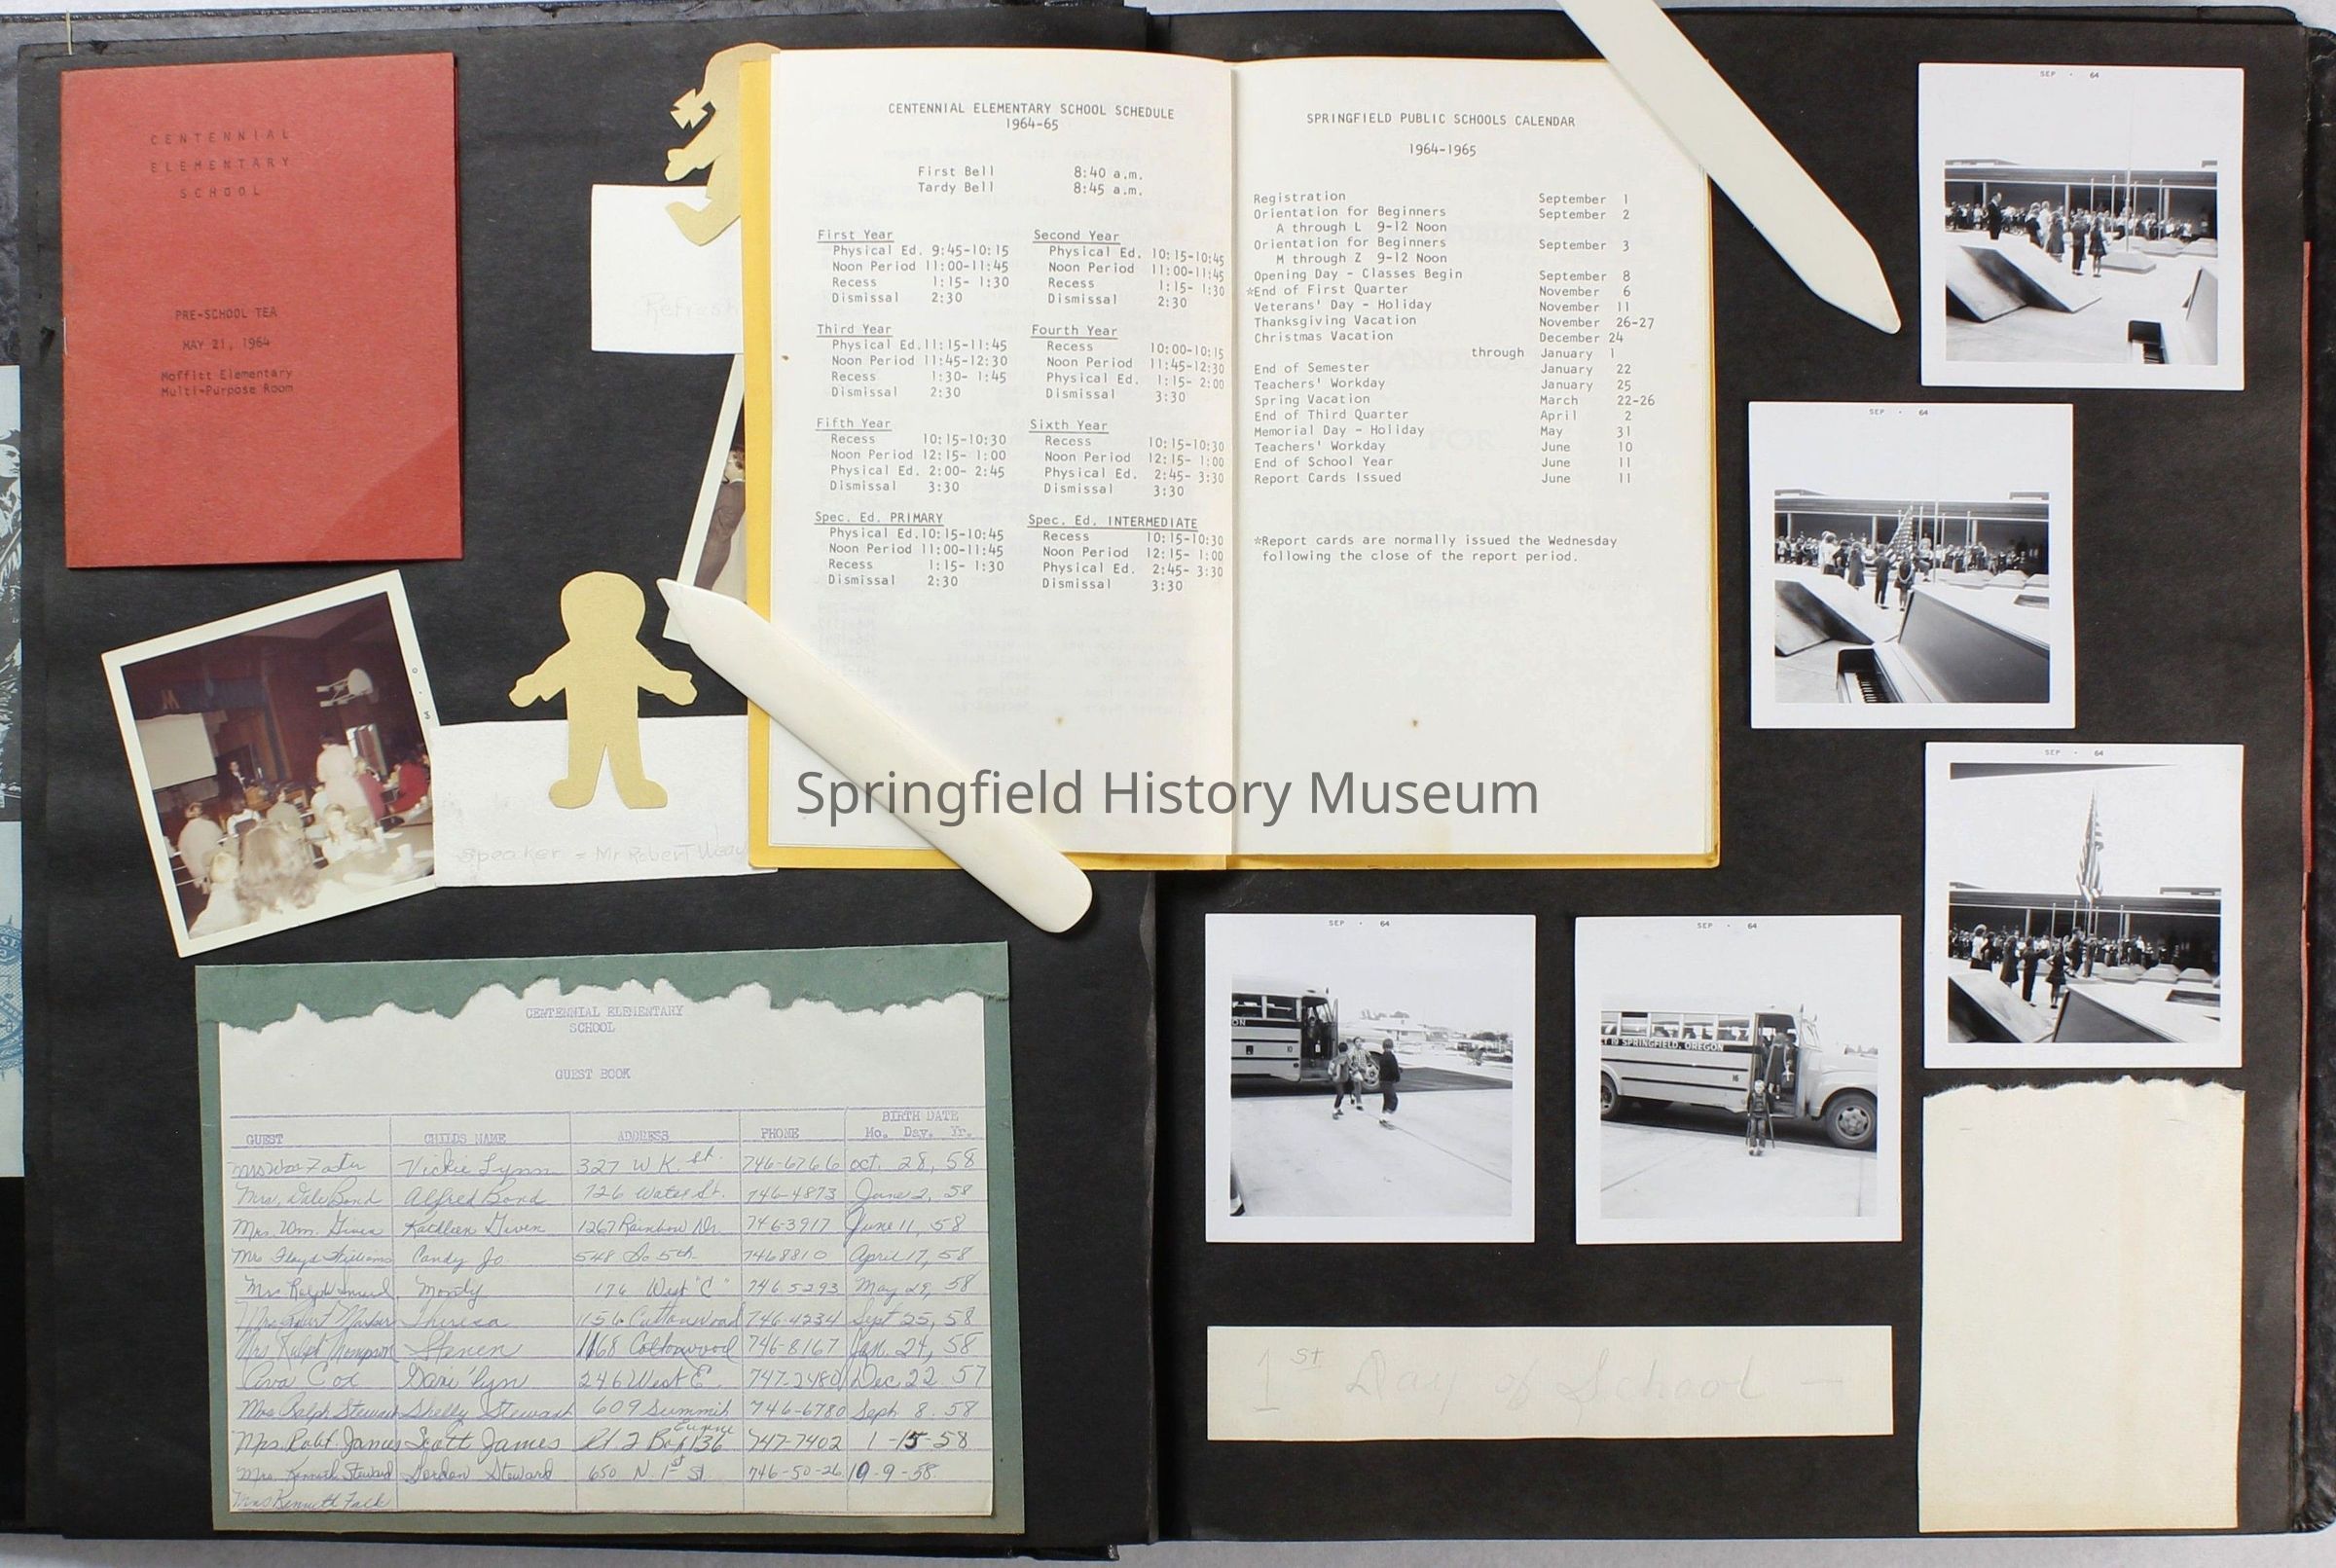 CENTENNIAL
ELEMENTARY
SCHOOL
PRE-SCHOOL TEA
MAY 21, 1964
Moffitt Elementary
Multi-Purpose Room
Refresh
Speaker = Mr. Robert
CENTENNIAL ELEMENTARY SCHOOL SCHEDULE
1964-65
First Bell 8:40 a.m.
Tardy Bell 8:45 a.m.
First Year
Physical Ed. 9:45-10:15
Noon Period 11:00-11:45
Recess 1:15- 1:30
Dismissal 2:30
Second Year
Physical Ed. 10:15-10:45
Noon Period 11:00-11:45
Recess 1:15- 1:30
Dismissal 2:30
Third Year
Physical Ed.11:15-11:45
Noon Period 11:45-12:30
Recess 1:30- 1:45
Dismissal 2:30
Fourth Year
Recess 10:00-10:15
Noon Period 11:45-12:30
Physical Ed. 1:15- 2:00
Dismissal 3:30
Fifth Year
Recess 10:15-10:30
Noon Period 12:15- 1:00
Physical Ed. 2:00- 2:45
Dismissal 3:30
Sixth Year
Recess 10:15-10:30
Noon Period 12:15- 1:00
Physical Ed. 2:45- 3:30
Dismissal 3:30
Spec. Ed. PRIMARY
Physical Ed.10:15-10:45
Noon Period 11:00-11:45
Recess 1:15- 1:30
Dismissal 2:30
Spec. Ed. INTERMEDIATE
Recess 10:15-10:30
Noon Period 12:15- 1:00
Physical Ed. 2:45- 3:30
Dismissal 3:30
SPRINGFIELD PUBLIC SCHOOLS CALENDAR
1964-1965
Registration September 1
Orientation for Beginners September 2
A through L 9-12 Noon
Orientation for Beginners September 3
M through Z 9-12 Noon
Opening Day - Classes Begin September 8
*End of First Quarter November 6
Veterans' Day - Holiday November 11
Thanksgiving Vacation November 26-27
Christmas Vacation December 24
through January 1
End of Semester January 22
Teachers' Workday January 25
Spring Vacation March 22-26
End of Third Quarter April 2
Memorial Day - Holiday May 31
Teachers' Workday June 10
End of School Year June 11
Report Cards Issued June 11
*Report cards are normally issued the Wednesday
following the close of the report period.
Springfield History Museum
SEP · 64
SEP · 64
SEP · 64
SEP · 64
SEP · 64
SPRINGFIELD, OREGON
1st Day of School —
CENTENNIAL ELEMENTARY
SCHOOL
GUEST BOOK
GUEST CHILDS NAME ADDRESS PHONE BIRTH DATE
Mo. Day. Yr.
Vickie Lynn 327 W K. St. 746-6766 Oct. 28, 58
Mrs. Dale Bond Alfred Bond 726 Water St. 746-4873 June 2, 58
Mrs. Wm. Given Kathleen Given 1267 Rainbow Dr. 746-3917 June 11, 58
Mrs Floyd Williams Candy Jo 548 So 5th 746 8810 April 17, 58
Mrs Ralph Monty 176 West "C" 746 5293 May 29, 58
Mrs. Theresa 1156 Cottonwood 746-4234 Sept 25, 58
Mrs Ralph Thompson 1168 Cottonwood 746-8167 Jan. 24, 58
Cox 246 West E. 747-2480 Dec 22 57
Mrs Ralph Stewart Shelly Stewart 609 Summit 746-6780 Sept 8. 58
Mrs. Robt. James Scott James Rt. 2 Box 136 Eugene 747-7402 1-15-58
Mrs. Kenneth Steward Gordon Steward 650 N. 1st St. 746-50-26 10-9-58
Mrs Kenneth